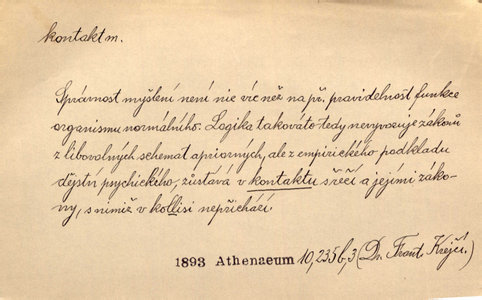 kontakt m.
Správnost myšlení není nic víc než na př. pravidelnost funkce
organismu normálního. Logika takováto tedy nevypozuje zákonů
z libovolných schemat apriorných, ale z empirického podkladu
dějství psychického, zůstává v kontaktu s řečí a jejími záko-
ny, s nimiž v kollisi nepřichází.
1893 Athenaeum 10,235b,3 (Dr. Frant. Krejčí.)